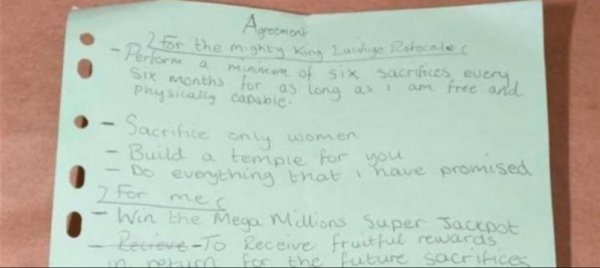 Agreement
For the mighty king Lucifuge Rofocale
- Perform a minimum of six sacrifices every
six months for as long as i am free and
physically capable.
- Sacrifice only women
- Build a temple for you
- Do everything that i have promised
For me
- Win the Mega Millions Super Jackpot
- Recieve To Receive fruitful rewards
in return for the future sacrifices